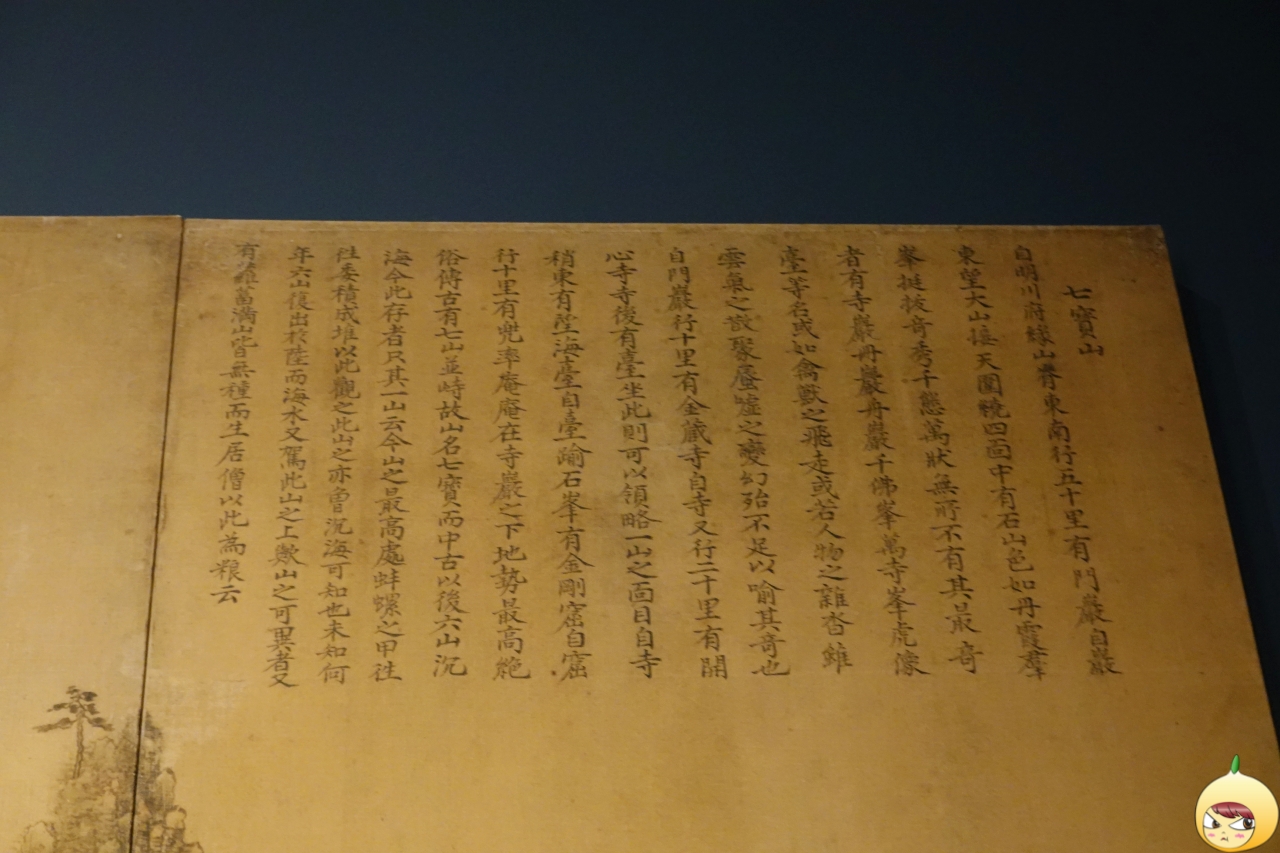 七寶山
自明川府緣山脊東南行五十里有門巖自巖
東望大山接天圍繞四面中有石山色如丹霞羣
峯挺拔奇秀千態萬狀無所不有其最奇
者有寺巖冊巖舟巖千佛峯萬寺峯虎像
臺等名或如禽獸之飛走或若人物之雜沓雖
雲氣之散聚蜃墟之變幻殆不足以喻其奇也
自門巖行十里有金藏寺自寺又行二十里有開
心寺寺後有臺坐此則可以領略一山之面目自寺
稍東有望海臺自臺踰石峯有金剛窟自窟
行十里有兜率庵庵在寺巖之下地勢最高絶
俗傳古有七山並峙故山名七寶而中古以後六山沉
海今此存者只其一山云今山之最高處蚌螺之甲往
往委積成堆以此觀之此山之亦曾沉海可知也未知何
年六山復出於陸而海水又駕此山之上歟山之可異者又
有 滿山皆無種而生居僧以此為粮云